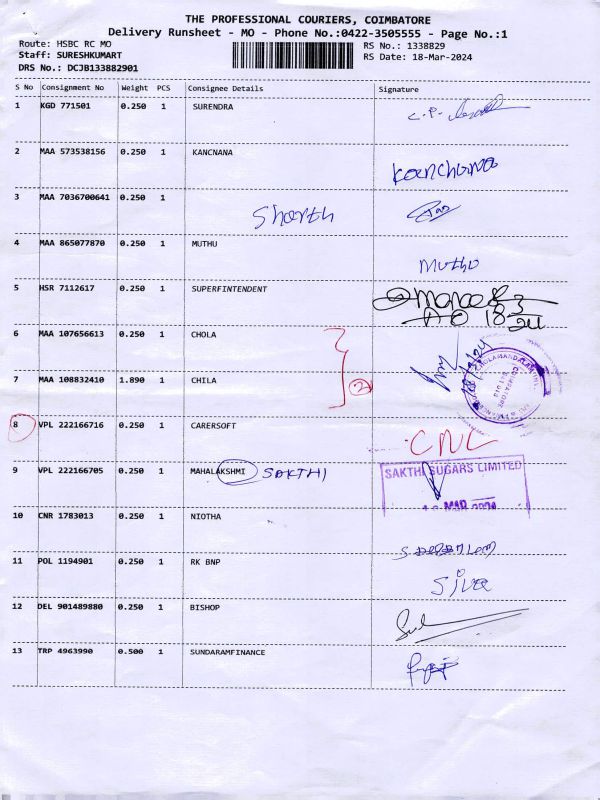 THE PROFESSIONAL COURIERS, COIMBATORE
Delivery Runsheet - MO - Phone No.:0422-3505555 - Page No.:1
Route: HSBC RC MO RS No.: 1338829
Staff: SURESHKUMART RS Date: 18-Mar-2024
DRS No.: DCJB133882901
S No Consignment No Weight PCS Consignee Details Signature
1 KGD 771501 0.250 1 SURENDRA
C.P.
2 MAA 573538156 0.250 1 KANCNANA
Kanchana
3 MAA 7036700641 0.250 1
Sharth
4 MAA 865077870 0.250 1 MUTHU
Muthu
5 HSR 7112617 0.250 1 SUPERFINTENDENT
6 MAA 107656613 0.250 1 CHOLA
7 MAA 108832410 1.890 1 CHILA
2
8 VPL 222166716 0.250 1 CARERSOFT
CNL
9 VPL 222166705 0.250 1 MAHALAKSHMI SAKTHI
SAKTHI SUGARS LIMITED
MAR 2024
10 CNR 1783013 0.250 1 NIOTHA
11 POL 1194901 0.250 1 RK BNP
Siva
12 DEL 901489880 0.250 1 BISHOP
13 TRP 4963990 0.500 1 SUNDARAMFINANCE